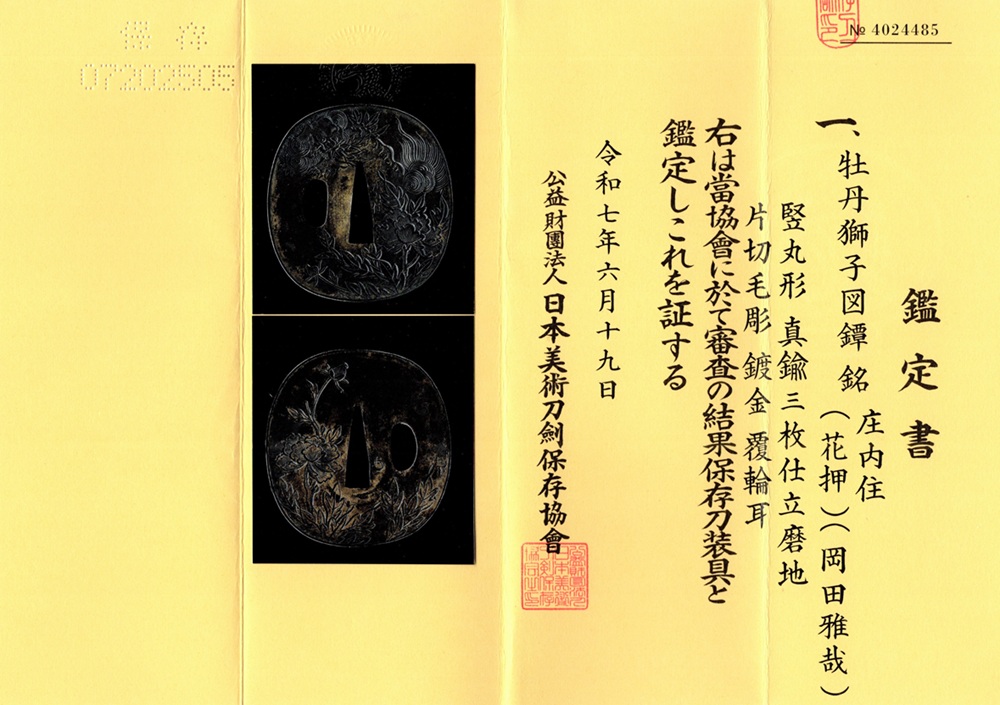 № 4024485
鑑定書
一、牡丹獅子図鐔 銘 庄内住
(花押)(岡田雅哉)
竪丸形 真鍮三枚仕立磨地
片切毛彫 鍍金 覆輪耳
右は當協會に於て審査の結果保存刀装具と
鑑定しこれを証する
令和七年六月十九日
公益財團法人 日本美術刀劍保存協會
保存
07202505